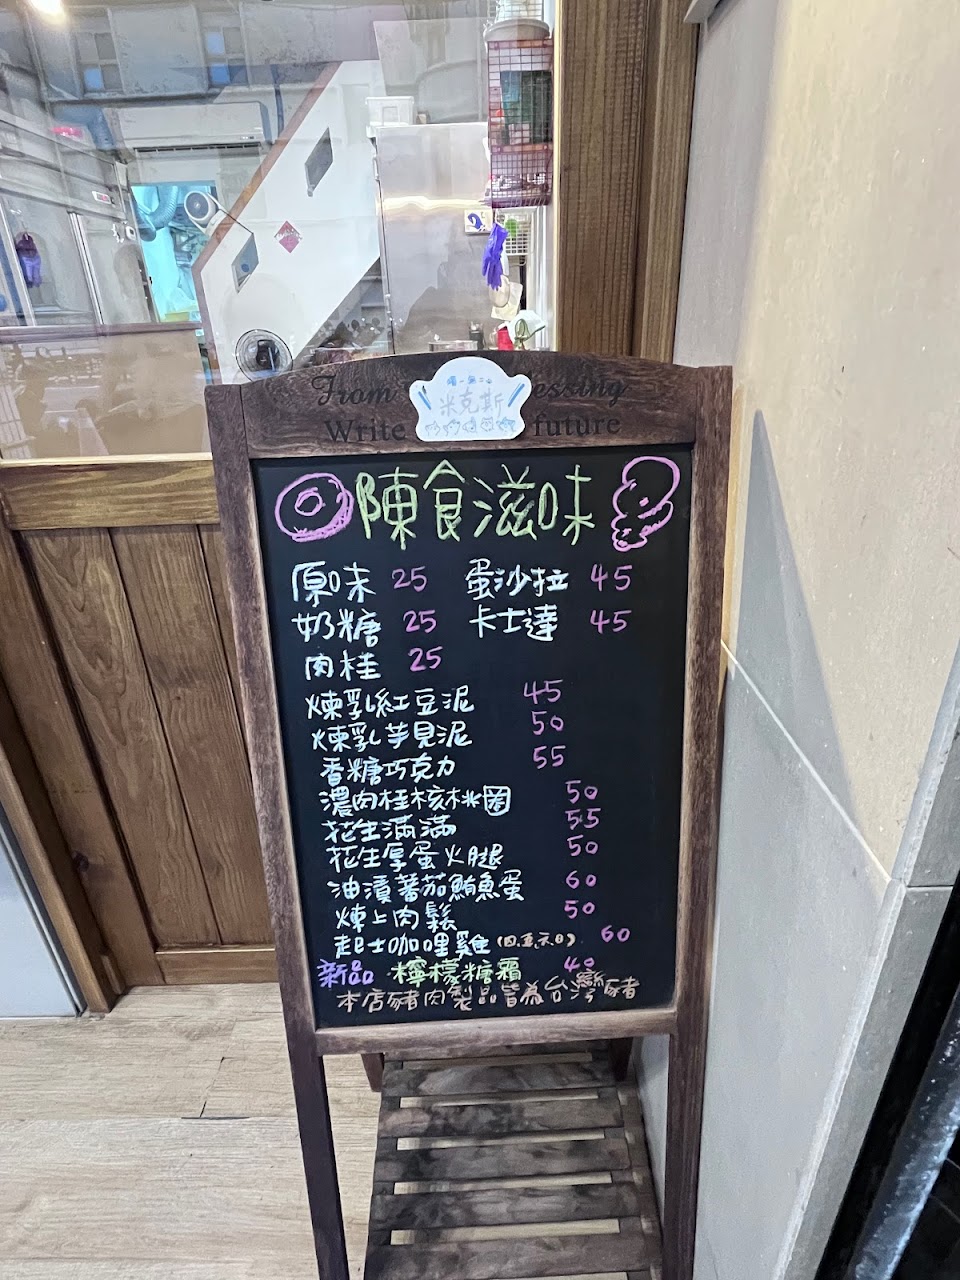 From essing
米克斯
Write future
陳食滋味
原味 25 蛋沙拉 45
奶糖 25 卡士達 45
肉桂 25
煉乳紅豆泥 45
煉乳芋見泥 50
香糖巧克力 55
濃肉桂核桃圈 50
花生滿滿 55
花生厚蛋火腿 50
油漬蕃茄鮪魚蛋 60
煉上肉鬆 50
起士咖哩雞(四.五.六.日) 60
新品 檸檬糖霜 40
本店豬肉製品皆為台灣豬